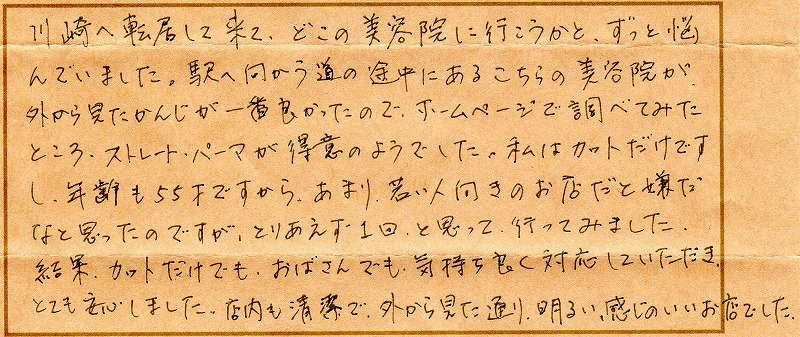 川崎へ転居して来て、どこの美容院に行こうかと、ずっと悩
んでいました。駅へ向かう道の途中にあるこちらの美容院が、
外から見たかんじが一番良かったので、ホームページで調べてみた
ところ、ストレート・パーマが得意のようでした。私はカットだけです
し、年齢も55才ですから、あまり、若い人向きのお店だと嫌だ
なと思ったのですが、とりあえず1回、と思って、行ってみました。
結果、カットだけでも、おばさんでも、気持ち良く対応していただき、
とても安心しました。店内も清潔で、外から見た通り、明るい、感じのいいお店でした。